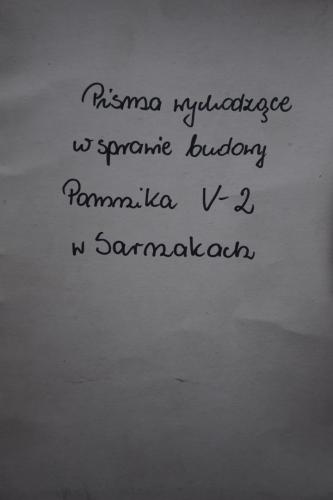 Pisma wychodzące
w sprawie budowy
Pomnika V-2
w Sarnakach